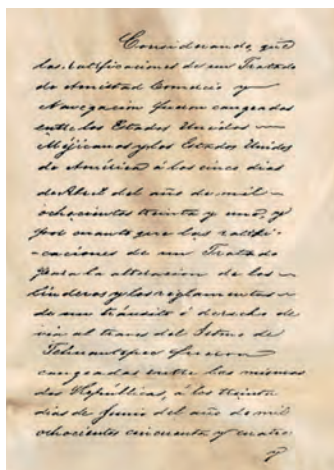 Considerando, que
las ratificaciones de un Tratado
de Amistad Comercio y
Navegacion fueron cangeadas
entre los Estados Unidos
Mejicanos y los Estados Unidos
de América á los cinco dias
de Abril del año de mil
ochocientos treinta y uno, y
por cuanto que las ratifi-
-caciones de un Tratado
para la alteracion de los
linderos y los reglamentos
de un tránsito ó derecho de
via al traves del Istmo de
Tehuantepec fueron
cangeadas entre las mismas
dos Repúblicas, á los treinta
dias de Junio del año de mil
ochocientos cincuenta y cuatro
y